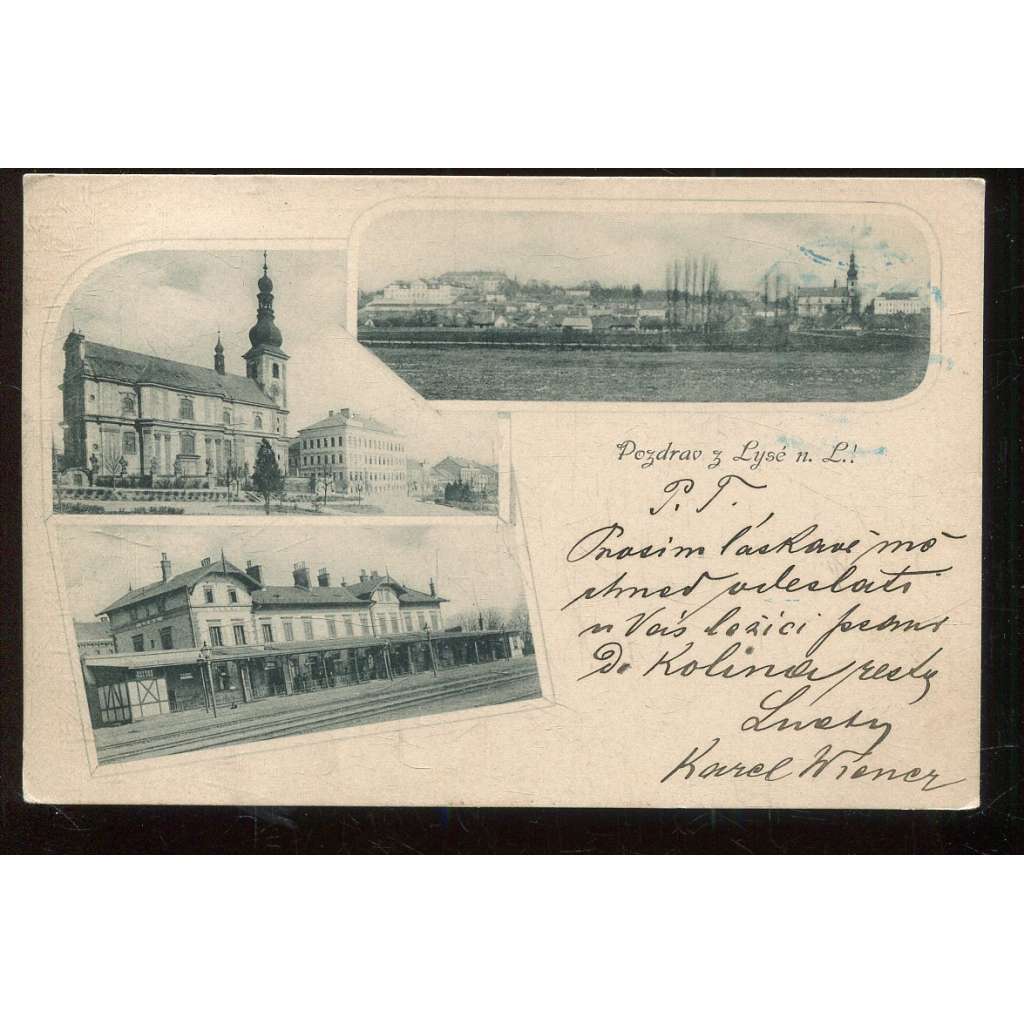 Pozdrav z Lysé n. L.!
P. T.
Prosím láskavě mě
ihned odeslati
u Vás ležící psaní
Do Kolína resty
Karel Wiener